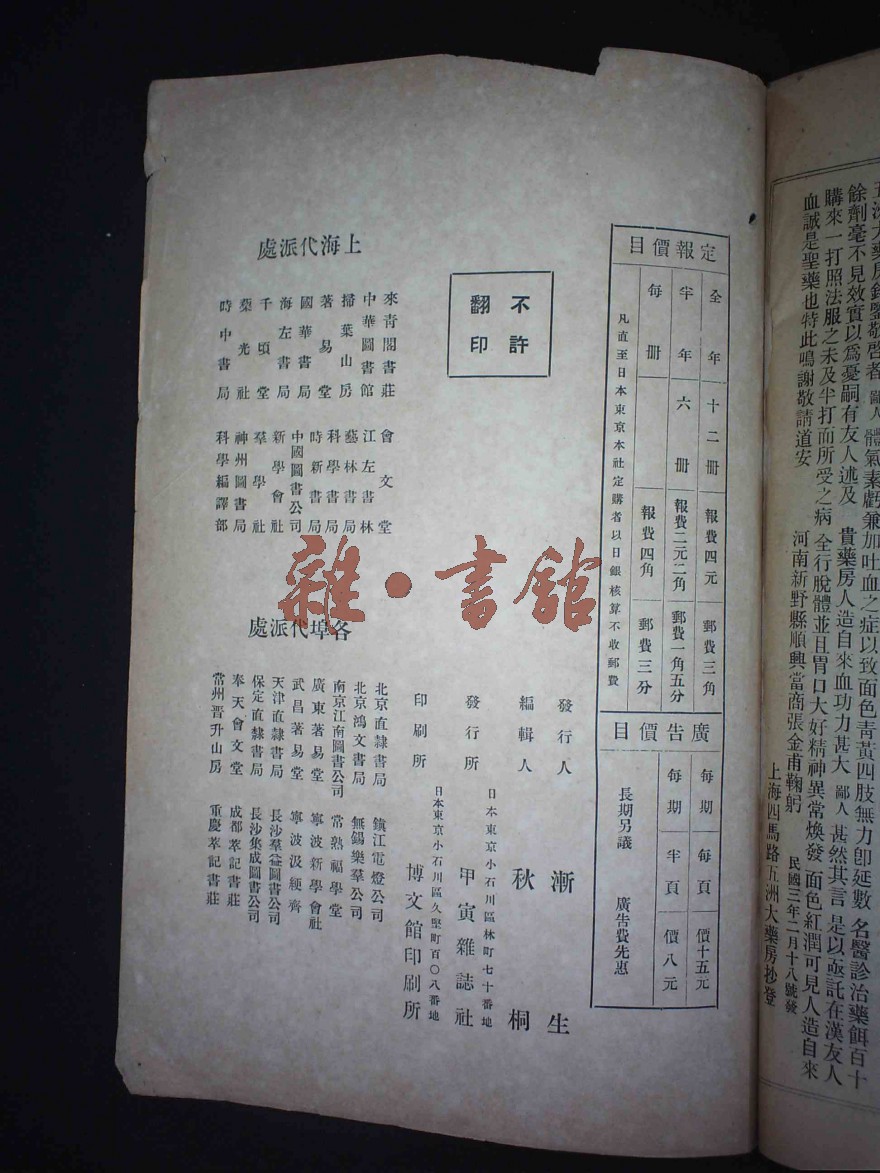 五洲大藥房鈞鑒敬啓者鄙人體氣素虧兼加吐血之症以致面色靑黃四肢無力卽延數名醫診治藥餌百十
餘劑毫不見效實以爲憂嗣有友人述及貴藥房人造自來血功力甚大鄙人甚然其言是以亟託在漢友人
購來一打照法服之未及半打而所受之病全行脫體並且胃口大好精神異常煥發面色紅潤可見人造自來
血誠是聖藥也特此鳴謝敬請道安
河南新野縣順興當商張金甫鞠躬
民國三年二月十八號發
上海四馬路五洲大藥房抄登
定報價目
全年十二册 報費四元 郵費三角
半年六册 報費二元二角 郵費一角五分
每册 報費四角 郵費三分
凡直至日本東京本社定購者以日銀核算不收郵費
廣告價目
每期每頁價十五元
每期半頁價八元
長期另議 廣告費先惠
不許
翻印
發行人 漸生
編輯人 秋桐
日本東京小石川區林町七十番地
發行所 甲寅雜誌社
日本東京小石川區久堅町百〇八番地
印刷所 博文館印刷所
上海代派處
來青閣書莊 會文堂
中華圖書館 江左書林
掃葉山房 藝林書局
著易堂 科學書局
國華書局 時新書局
海左書局 中國圖書公司
千頃堂 新學會社
藥光社 羣學社
時中書局 神州圖書局
科學編譯部
各埠代派處
北京直隸書局 鎮江電燈公司
北京鴻文書局 無錫樂羣公司
南京江南圖書公司 常熟福學堂
廣東著易堂 寧波新學會社
武昌著易堂 寧波汲綆齊
天津直隸書局 長沙羣益圖書公司
保定直隸書局 長沙集成圖書公司
奉天會文堂 成都萃記書莊
常州晋升山房 重慶萃記書莊
雜·書館